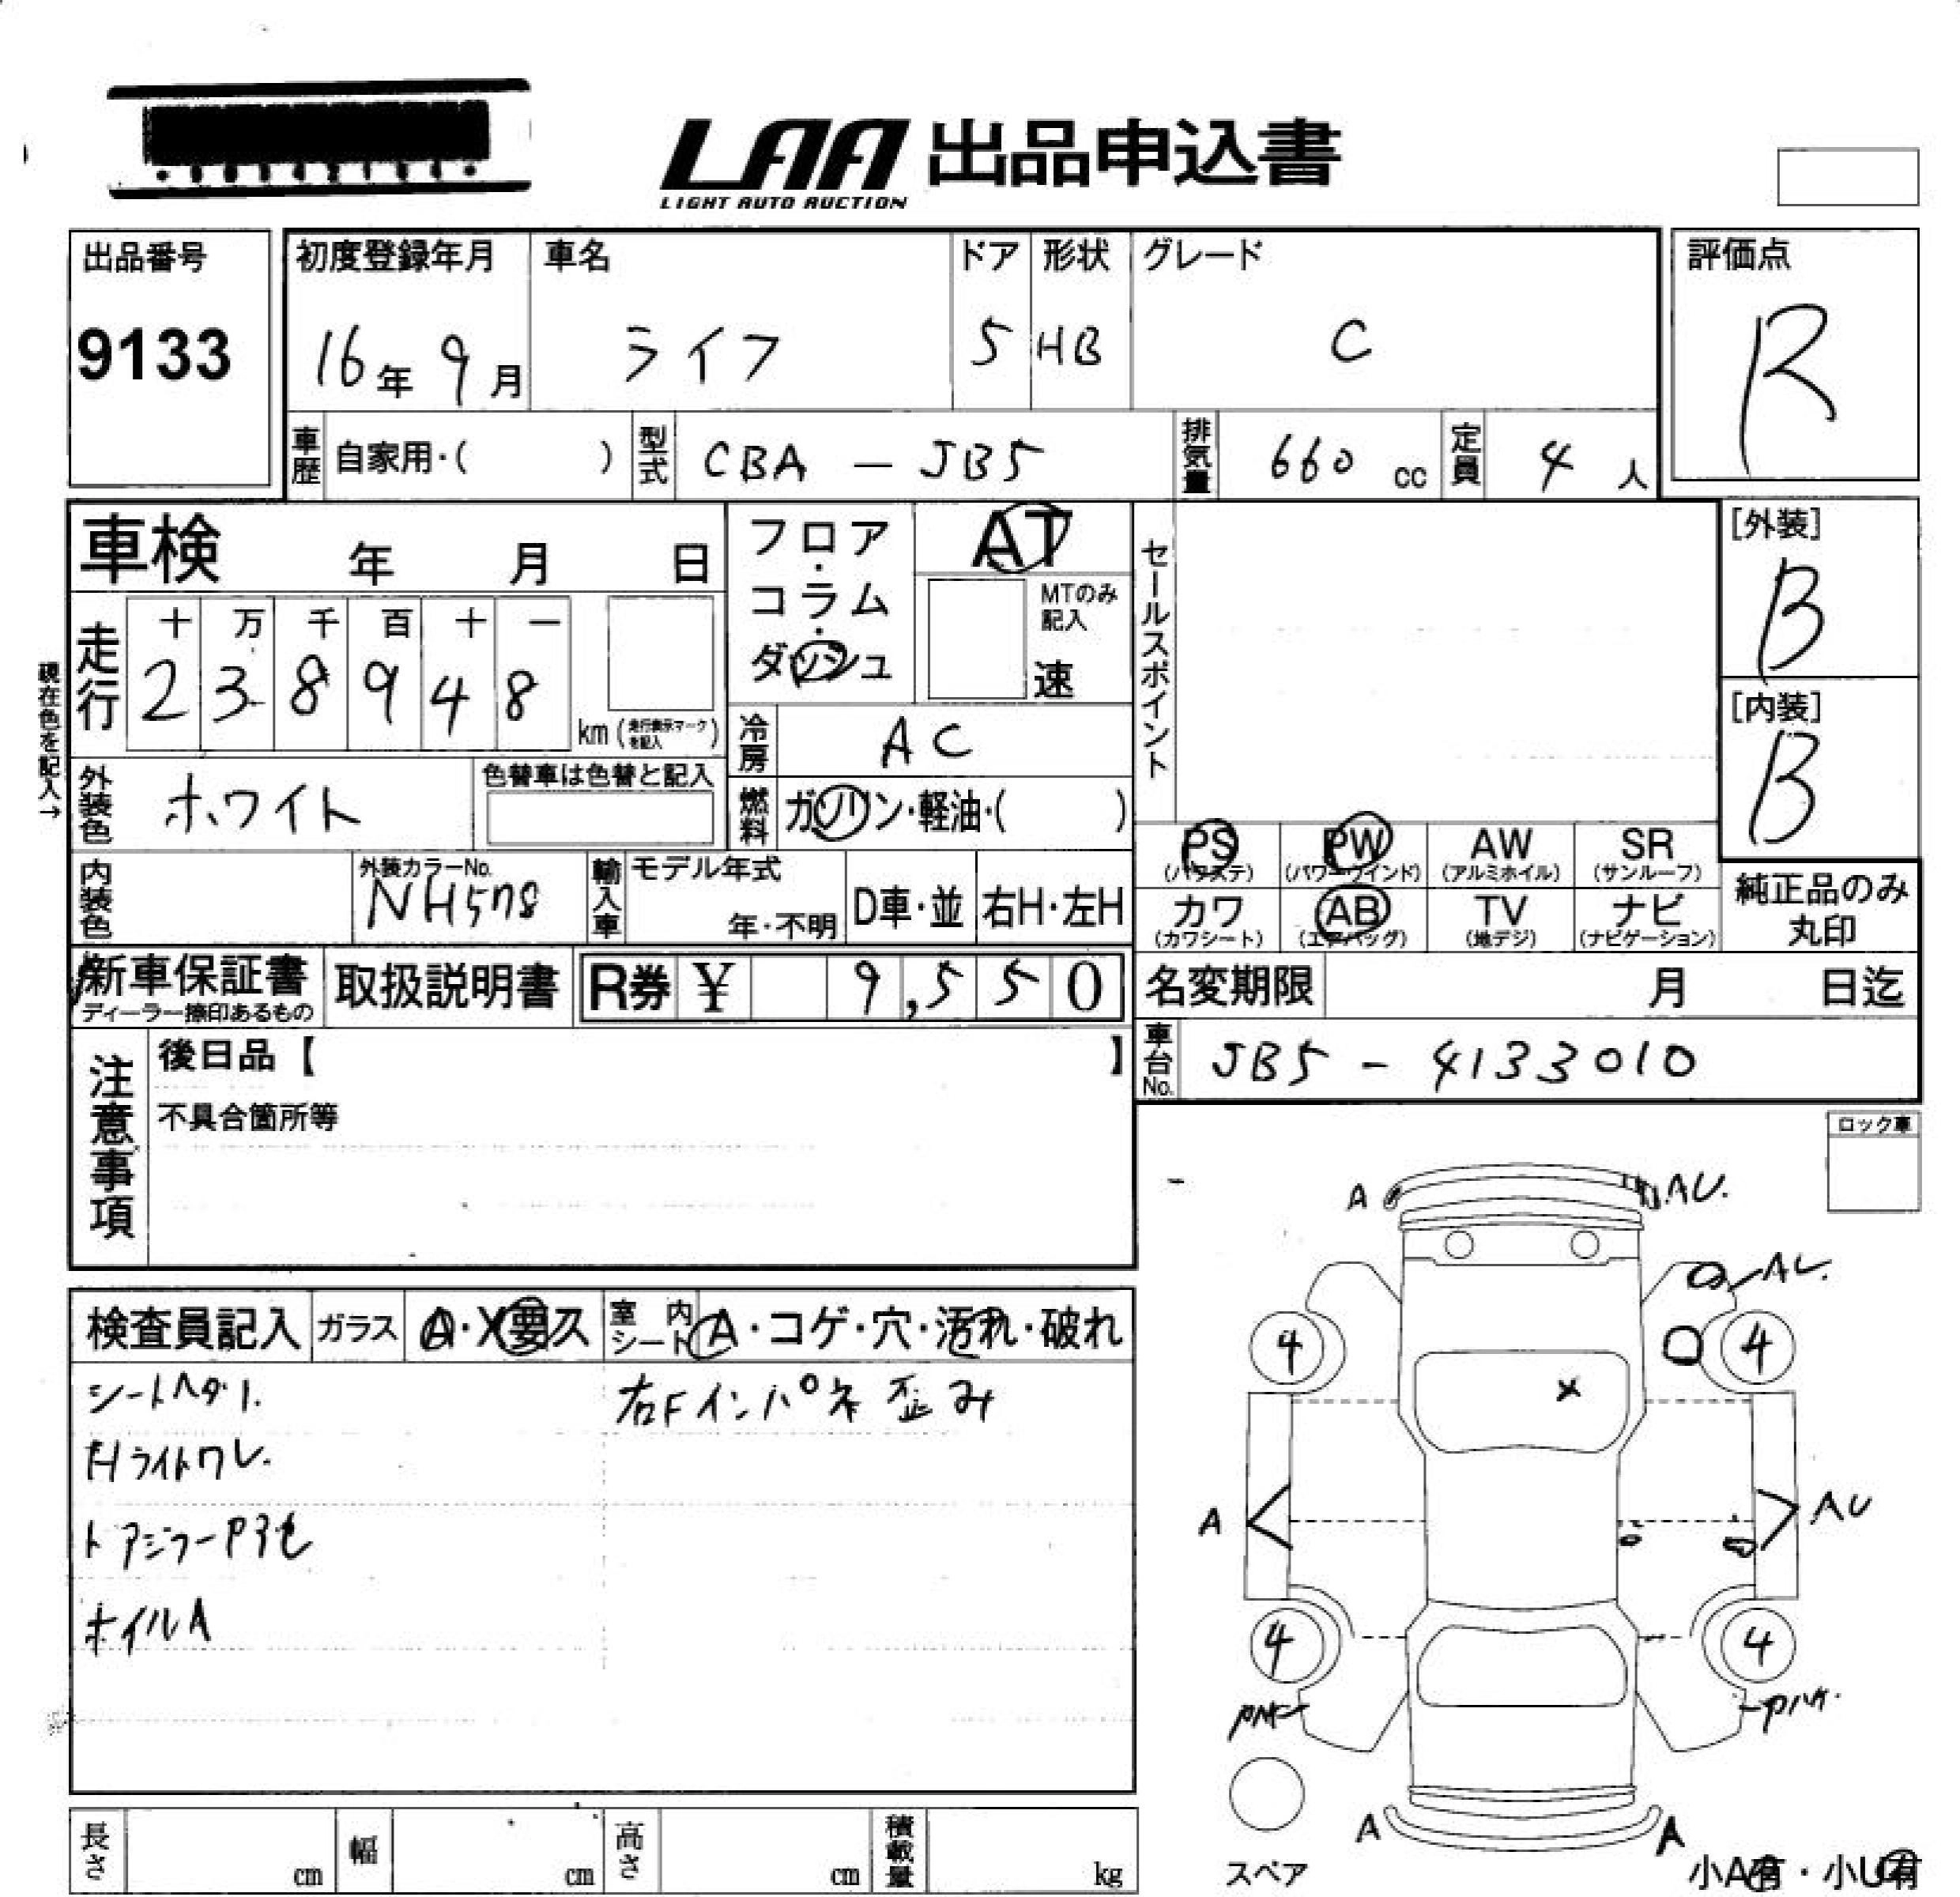 LAA 出品申込書
LIGHT AUTO AUCTION
出品番号
9133
初度登録年月
16年 9月
車名
ライフ
ドア
5
形状
HB
グレード
C
評価点
R
車歴 自家用・( )
型式 CBA - JB5
排気量 660 cc
定員 4 人
車検 年 月 日
フロア・コラム・ダッシュ
AT
MTのみ記入
速
セールスポイント
[外装]
B
[内装]
B
現在色を記入→
走行
十 万 千 百 十 一
2 3 8 9 4 8
km (走行表示マークを記入)
冷房 AC
外装色 ホワイト
色替車は色替と記入
燃料 ガソリン・軽油・( )
内装色
外装カラーNo.
NH578
輸入車 モデル年式
年・不明
D車・並
右H・左H
PS (パワステ)
PW (パワーウインド)
AW (アルミホイル)
SR (サンルーフ)
カワ (カワシート)
AB (エアバッグ)
TV (地デジ)
ナビ (ナビゲーション)
純正品のみ
丸印
新車保証書
ディーラー捺印あるもの
取扱説明書
R券 ¥ 9,550
名変期限 月 日迄
車台No. JB5 - 4133010
注意事項
後日品【 】
不具合箇所等
ロック車
検査員記入
ガラス A・X要ス
室内シート A・コゲ・穴・汚れ・破れ
シートヘタリ.
右Fインパネ歪み
Hライトワレ.
ドアミラーP
ホイルA
A
AU.
AU.
4
4
X
A
AU
4
4
A
A
スペア
小A有・小U有
長さ cm
幅 cm
高さ cm
積載量 kg